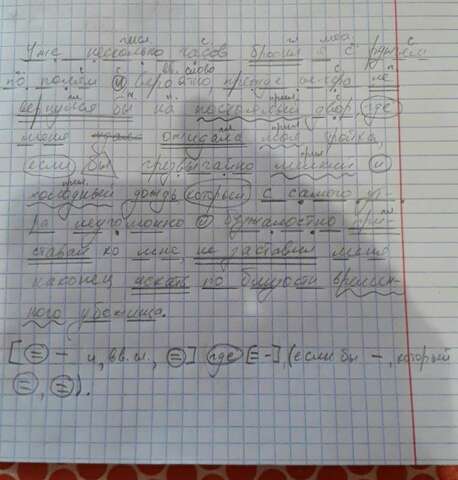 числ с гл мест. с
Уже несколько часов бродил я с ружьём
по полям и вероятно, прежде вечера не
вернулся бы на постоялый двор, где
меня ожидала моя тройка,
если бы чрезвычайно мелкий и
холодный дождь который с самого ут-
ра неугомонно и безжалостно при-
ставал ко мне, не заставил меня
наконец искать по близости времен-
ного убежища.
[= – и, вв. сл., =] где [= –], (если бы –, который
=, =).